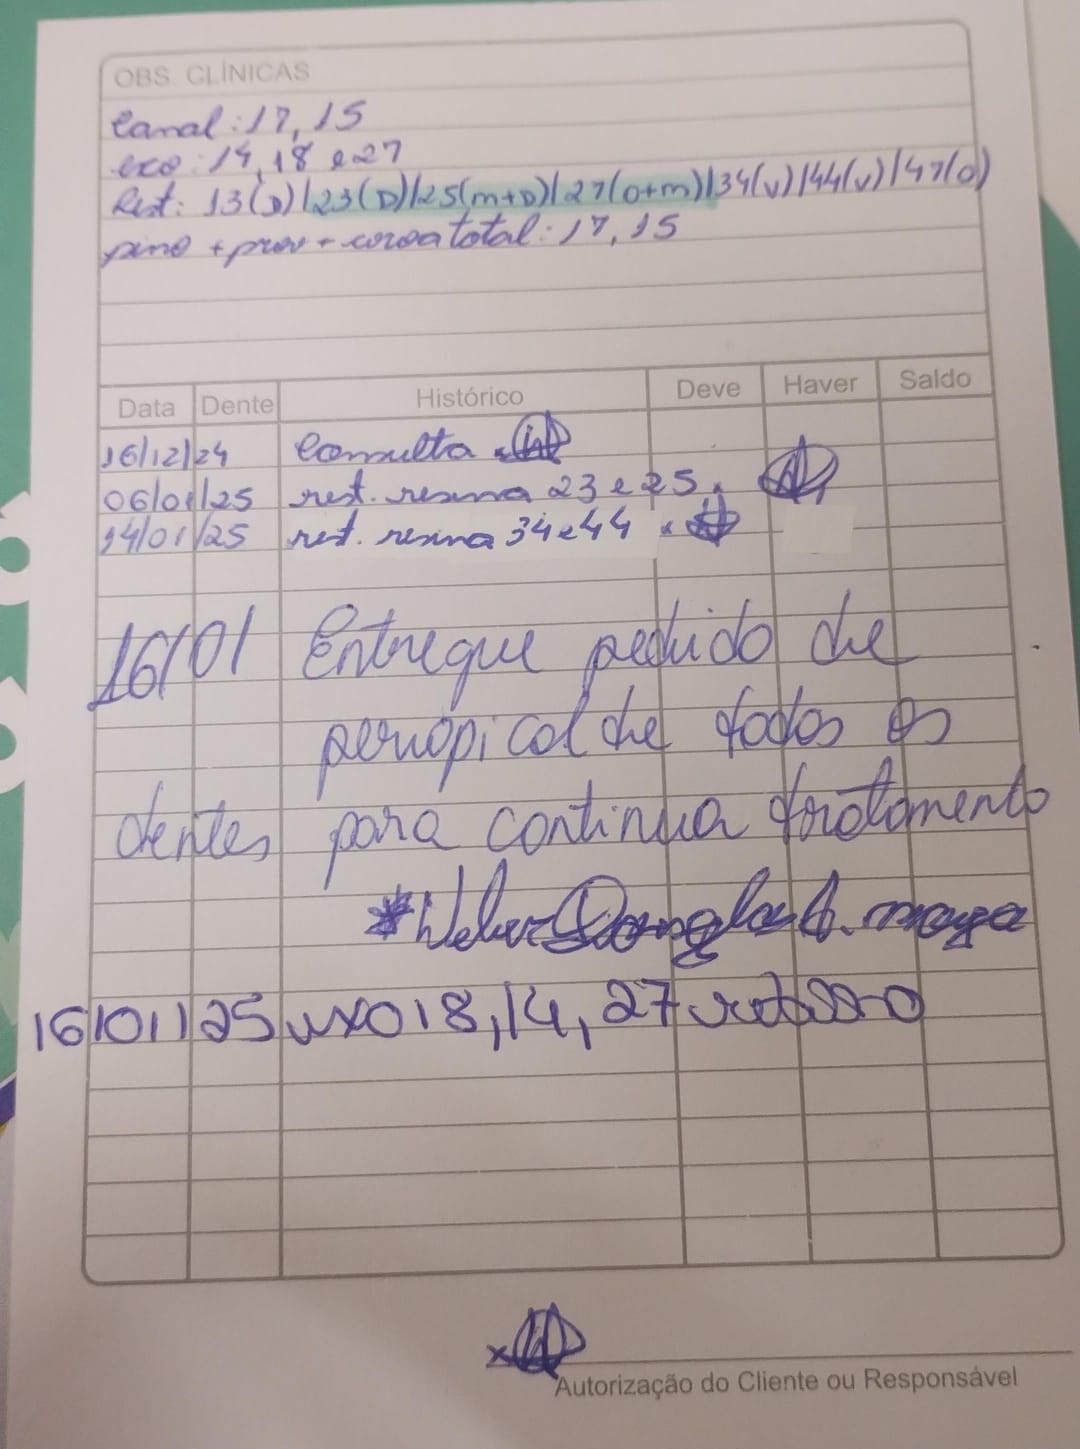 OBS. CLÍNICAS
Canal: 17, 15
exo: 14, 18 e 27
Rest: 13(D)|23(D)|25(m+D)|27(o+m)|34(v)|44(v)|47(o)
pino + prov + coroa total: 17, 15
Data Dente Histórico Deve Haver Saldo
16/12/24 Consulta
06/01/25 rest. resina 23 e 25
14/01/25 rest. resina 34 e 44
16/01 Entregue pedido de
periapical de todos os
dentes para continua tratamento
Weber Douglas A. maya
16/01/25 exo 18, 14, 27
Autorização do Cliente ou Responsável